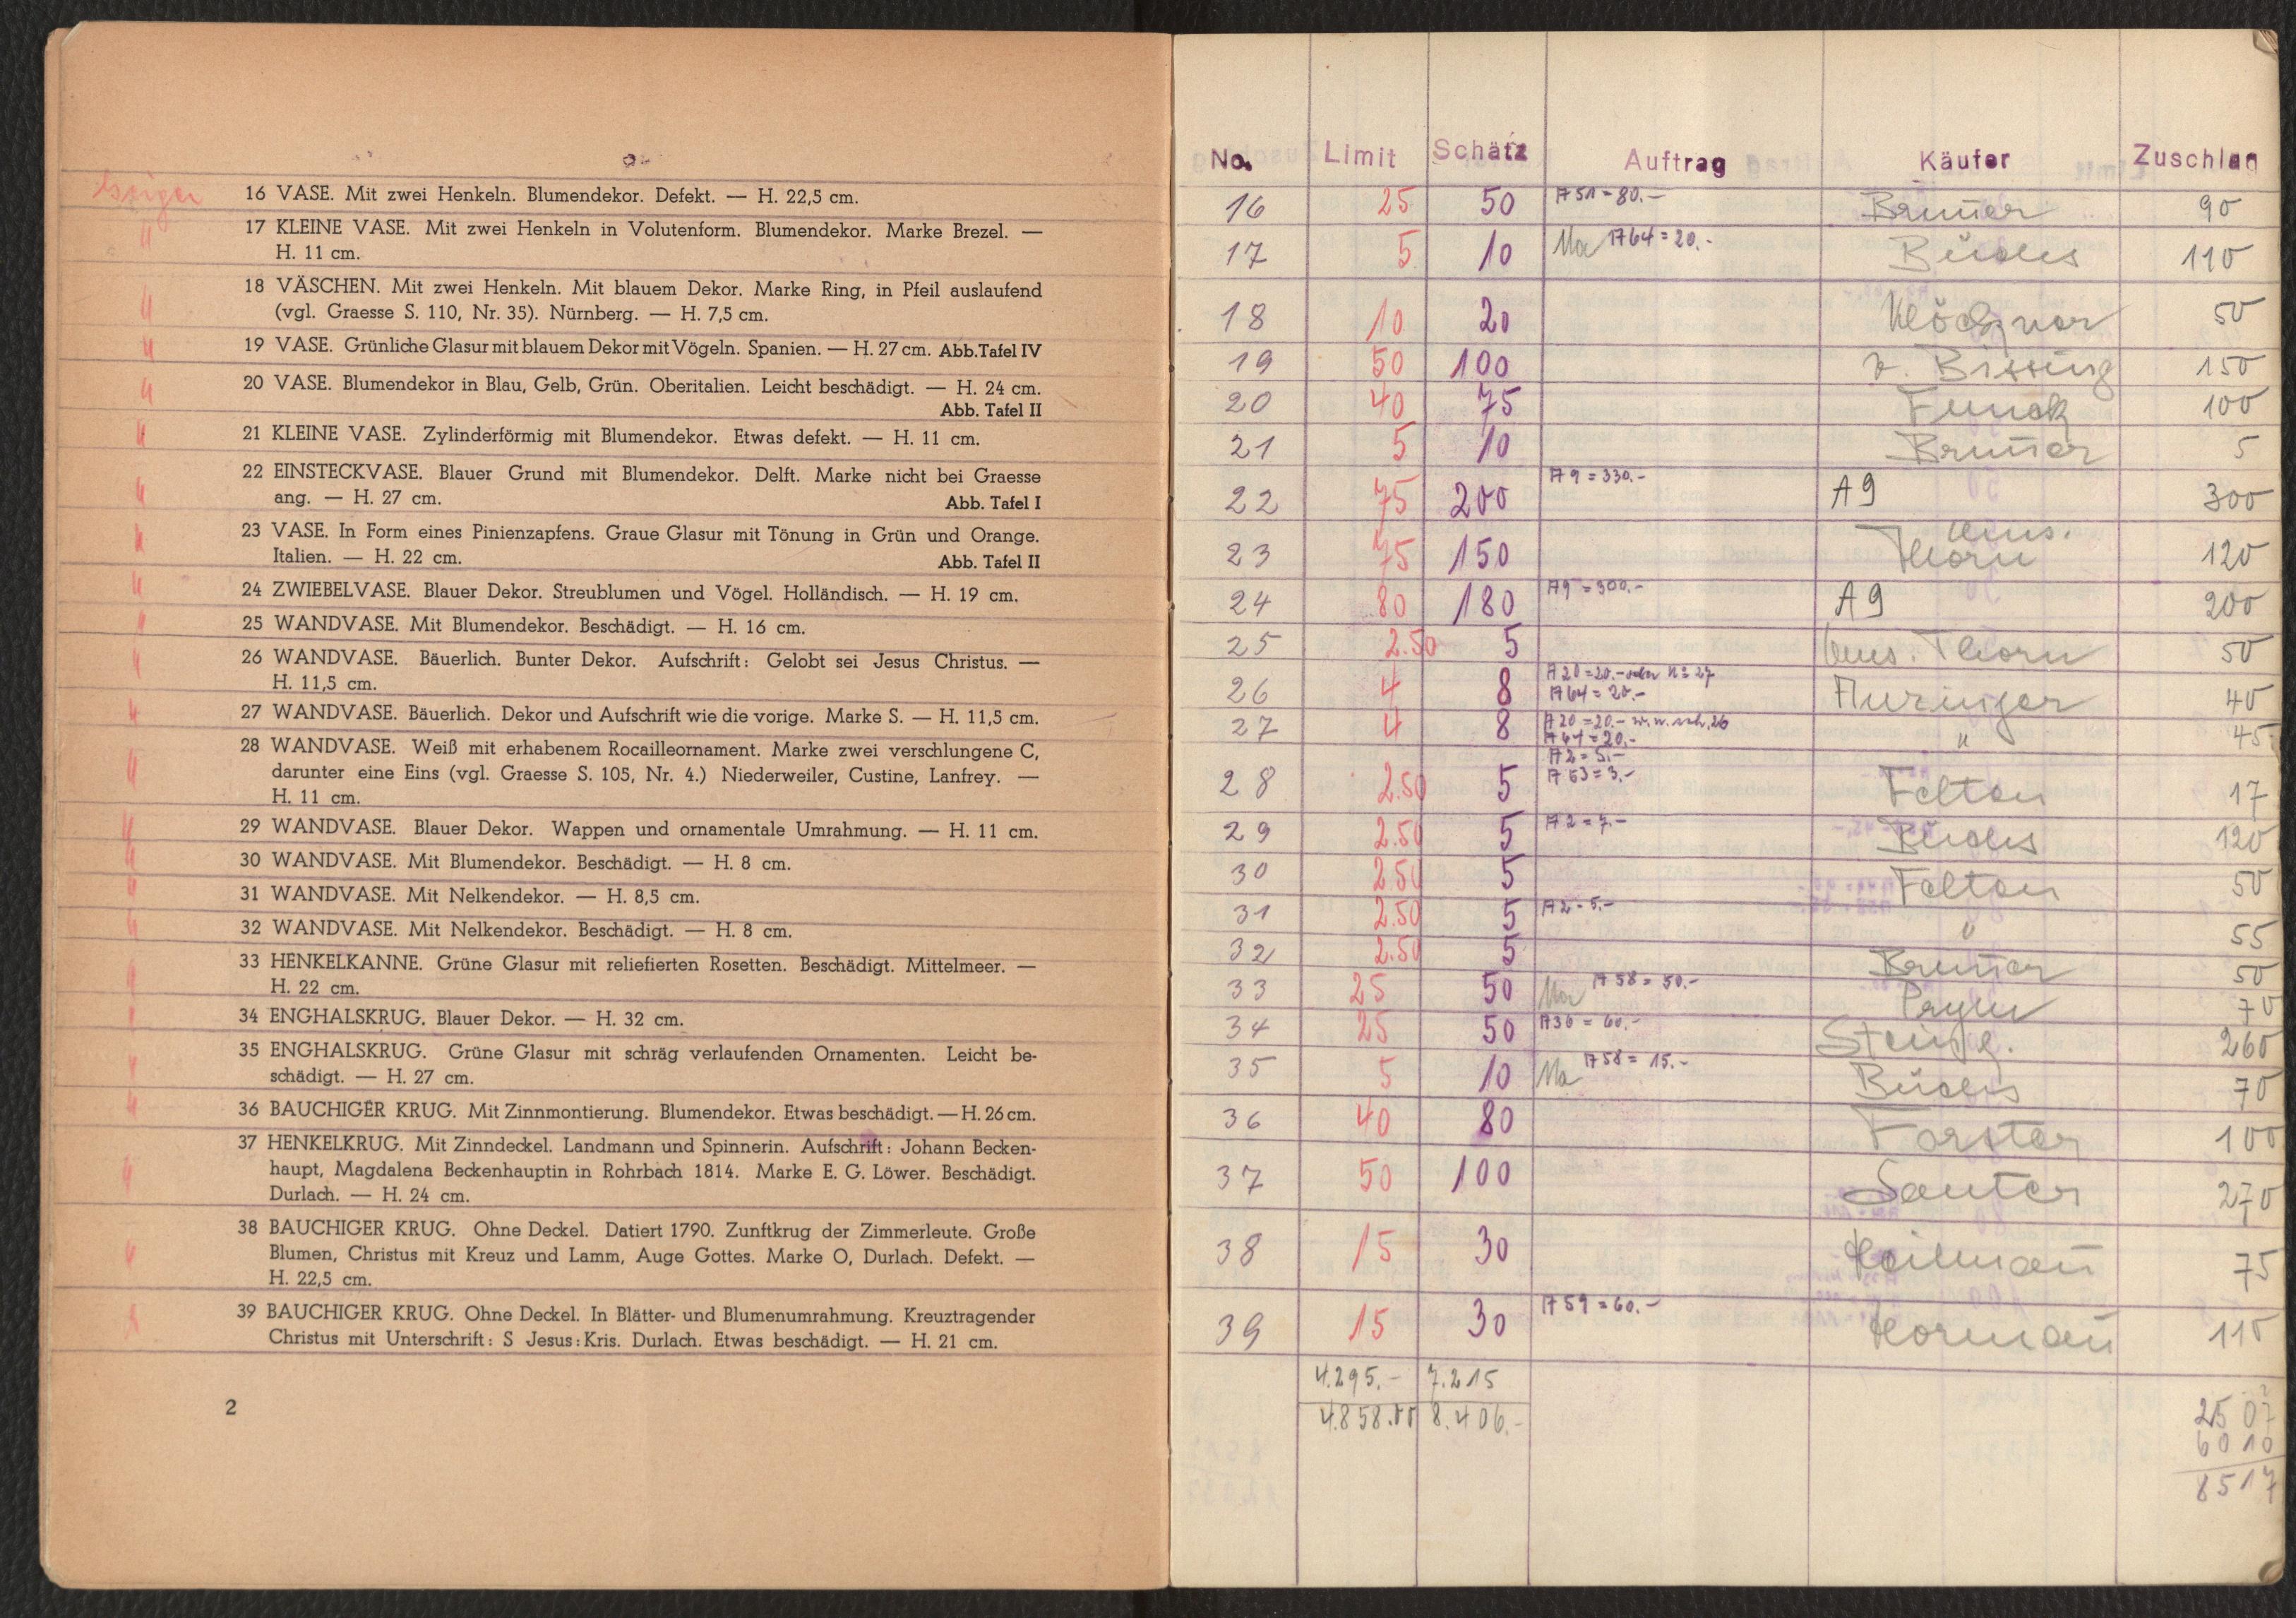 16 VASE. Mit zwei Henkeln. Blumendekor. Defekt. — H. 22,5 cm.
17 KLEINE VASE. Mit zwei Henkeln in Volutenform. Blumendekor. Marke Brezel. —
H. 11 cm.
18 VÄSCHEN. Mit zwei Henkeln. Mit blauem Dekor. Marke Ring, in Pfeil auslaufend
(vgl. Graesse S. 110, Nr. 35). Nürnberg. — H. 7,5 cm.
19 VASE. Grünliche Glasur mit blauem Dekor mit Vögeln. Spanien. — H. 27 cm. Abb. Tafel IV
20 VASE. Blumendekor in Blau, Gelb, Grün. Oberitalien. Leicht beschädigt. — H. 24 cm.
Abb. Tafel II
21 KLEINE VASE. Zylinderförmig mit Blumendekor. Etwas defekt. — H. 11 cm.
22 EINSTECKVASE. Blauer Grund mit Blumendekor. Delft. Marke nicht bei Graesse
ang. — H. 27 cm. Abb. Tafel I
23 VASE. In Form eines Pinienzapfens. Graue Glasur mit Tönung in Grün und Orange.
Italien. — H. 22 cm. Abb. Tafel II
24 ZWIEBELVASE. Blauer Dekor. Streublumen und Vögel. Holländisch. — H. 19 cm.
25 WANDVASE. Mit Blumendekor. Beschädigt. — H. 16 cm.
26 WANDVASE. Bäuerlich. Bunter Dekor. Aufschrift: Gelobt sei Jesus Christus. —
H. 11,5 cm.
27 WANDVASE. Bäuerlich. Dekor und Aufschrift wie die vorige. Marke S. — H. 11,5 cm.
28 WANDVASE. Weiß mit erhabenem Rocailleornament. Marke zwei verschlungene C,
darunter eine Eins (vgl. Graesse S. 105, Nr. 4.) Niederweiler, Custine, Lanfrey. —
H. 11 cm.
29 WANDVASE. Blauer Dekor. Wappen und ornamentale Umrahmung. — H. 11 cm.
30 WANDVASE. Mit Blumendekor. Beschädigt. — H. 8 cm.
31 WANDVASE. Mit Nelkendekor. — H. 8,5 cm.
32 WANDVASE. Mit Nelkendekor. Beschädigt. — H. 8 cm.
33 HENKELKANNE. Grüne Glasur mit reliefierten Rosetten. Beschädigt. Mittelmeer. —
H. 22 cm.
34 ENGHALSKRUG. Blauer Dekor. — H. 32 cm.
35 ENGHALSKRUG. Grüne Glasur mit schräg verlaufenden Ornamenten. Leicht be-
schädigt. — H. 27 cm.
36 BAUCHIGER KRUG. Mit Zinnmontierung. Blumendekor. Etwas beschädigt. — H. 26 cm.
37 HENKELKRUG. Mit Zinndeckel. Landmann und Spinnerin. Aufschrift: Johann Becken-
haupt, Magdalena Beckenhauptin in Rohrbach 1814. Marke E. G. Löwer. Beschädigt.
Durlach. — H. 24 cm.
38 BAUCHIGER KRUG. Ohne Deckel. Datiert 1790. Zunftkrug der Zimmerleute. Große
Blumen, Christus mit Kreuz und Lamm, Auge Gottes. Marke O, Durlach. Defekt. —
H. 22,5 cm.
39 BAUCHIGER KRUG. Ohne Deckel. In Blätter- und Blumenumrahmung. Kreuztragender
Christus mit Unterschrift: S Jesus: Kris. Durlach. Etwas beschädigt. — H. 21 cm.
2
No. Limit Schätz Auftrag Käufer Zuschlag
16 25 50 A51 = 80.- 90
17 5 10 A64 = 20.- 110
18 10 20 50
19 50 100 v. Bissing 150
20 40 75 Funck 100
21 5 10 5
22 75 200 A9 = 330.- A9 300
23 75 150 Thorn 120
24 80 180 A9 = 300.- A9 200
25 2.50 5 Mus. Thorn 50
26 4 8 A20 = 20.- oder No 27 40
A64 = 20.-
27 4 8 A20 = 20.- 26 " 45
A64 = 20.-
28 2.50 5 A2 = 5.- Felton 17
A53 = 3.-
29 2.50 5 A2 = 7.- 120
30 2.50 5 Felton 50
31 2.50 5 A2 = 5.- " 55
32 2.50 5 50
33 25 50 A58 = 50.- Prym 70
34 25 50 A36 = 60.- 260
35 5 10 A58 = 15.- 70
36 40 80 Forster 100
37 50 100 Sauter 270
38 15 30 Heilmann 75
39 15 30 A59 = 60.- Hormann 110
4.295.- 7.215
4.858.00 8.406.-
2507
6010
8517